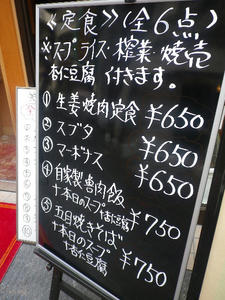 ≪定食≫(全6点)
※スープ.ライス・榨業・焼売
杏仁豆腐 付きます。
① 生姜焼肉定食 ¥650
② スブタ ¥650
③ マーボナス ¥650
④ 自家製魯肉飯 ¥750
+本日のスープ+杏仁豆腐
⑤ 五目焼きそば ¥750
+本日のスープ
+杏仁豆腐